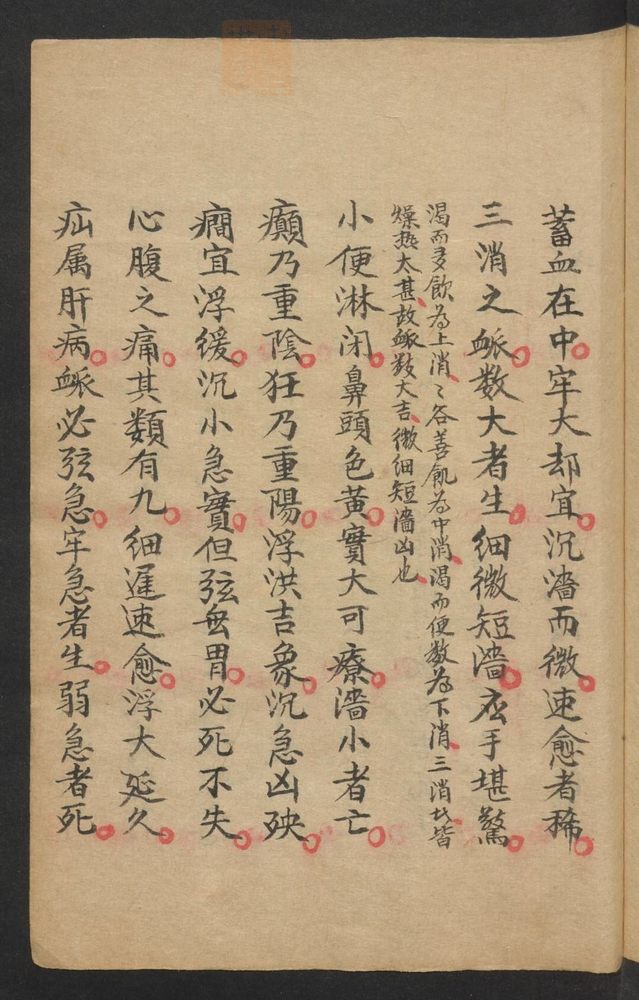 蓄血在中牢大却宜沉濇而微速愈者稀
三消之脈数大者生細微短濇应手堪驚
渴而多飲為上消〻谷善飢為中消渴而便数為下消三消者皆
燥热太甚故脈数大吉微細短濇凶也
小便淋闭鼻頭色黄實大可療濇小者亡
癲乃重陰狂乃重陽浮洪吉象沉急凶殃
癇宜浮缓沉小急實但弦無胃必死不失
心腹之痛其類有九細遲速愈浮大延久
疝属肝病脈必弦急牢急者生弱急者死